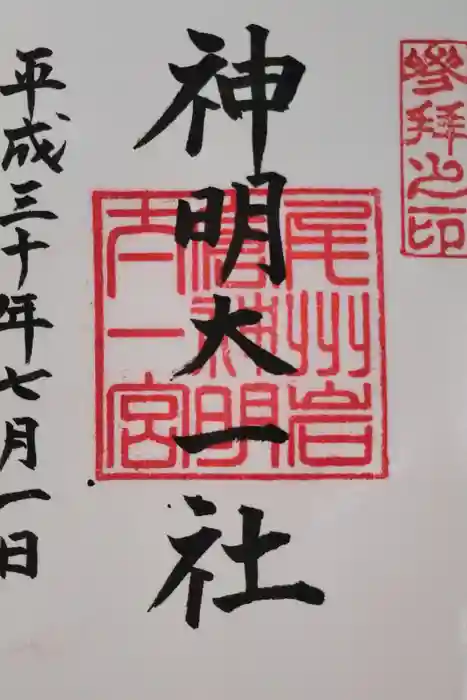 參拝之印
神明大一社
尾州岩
倉神明
大一宮
平成三十年七月一日